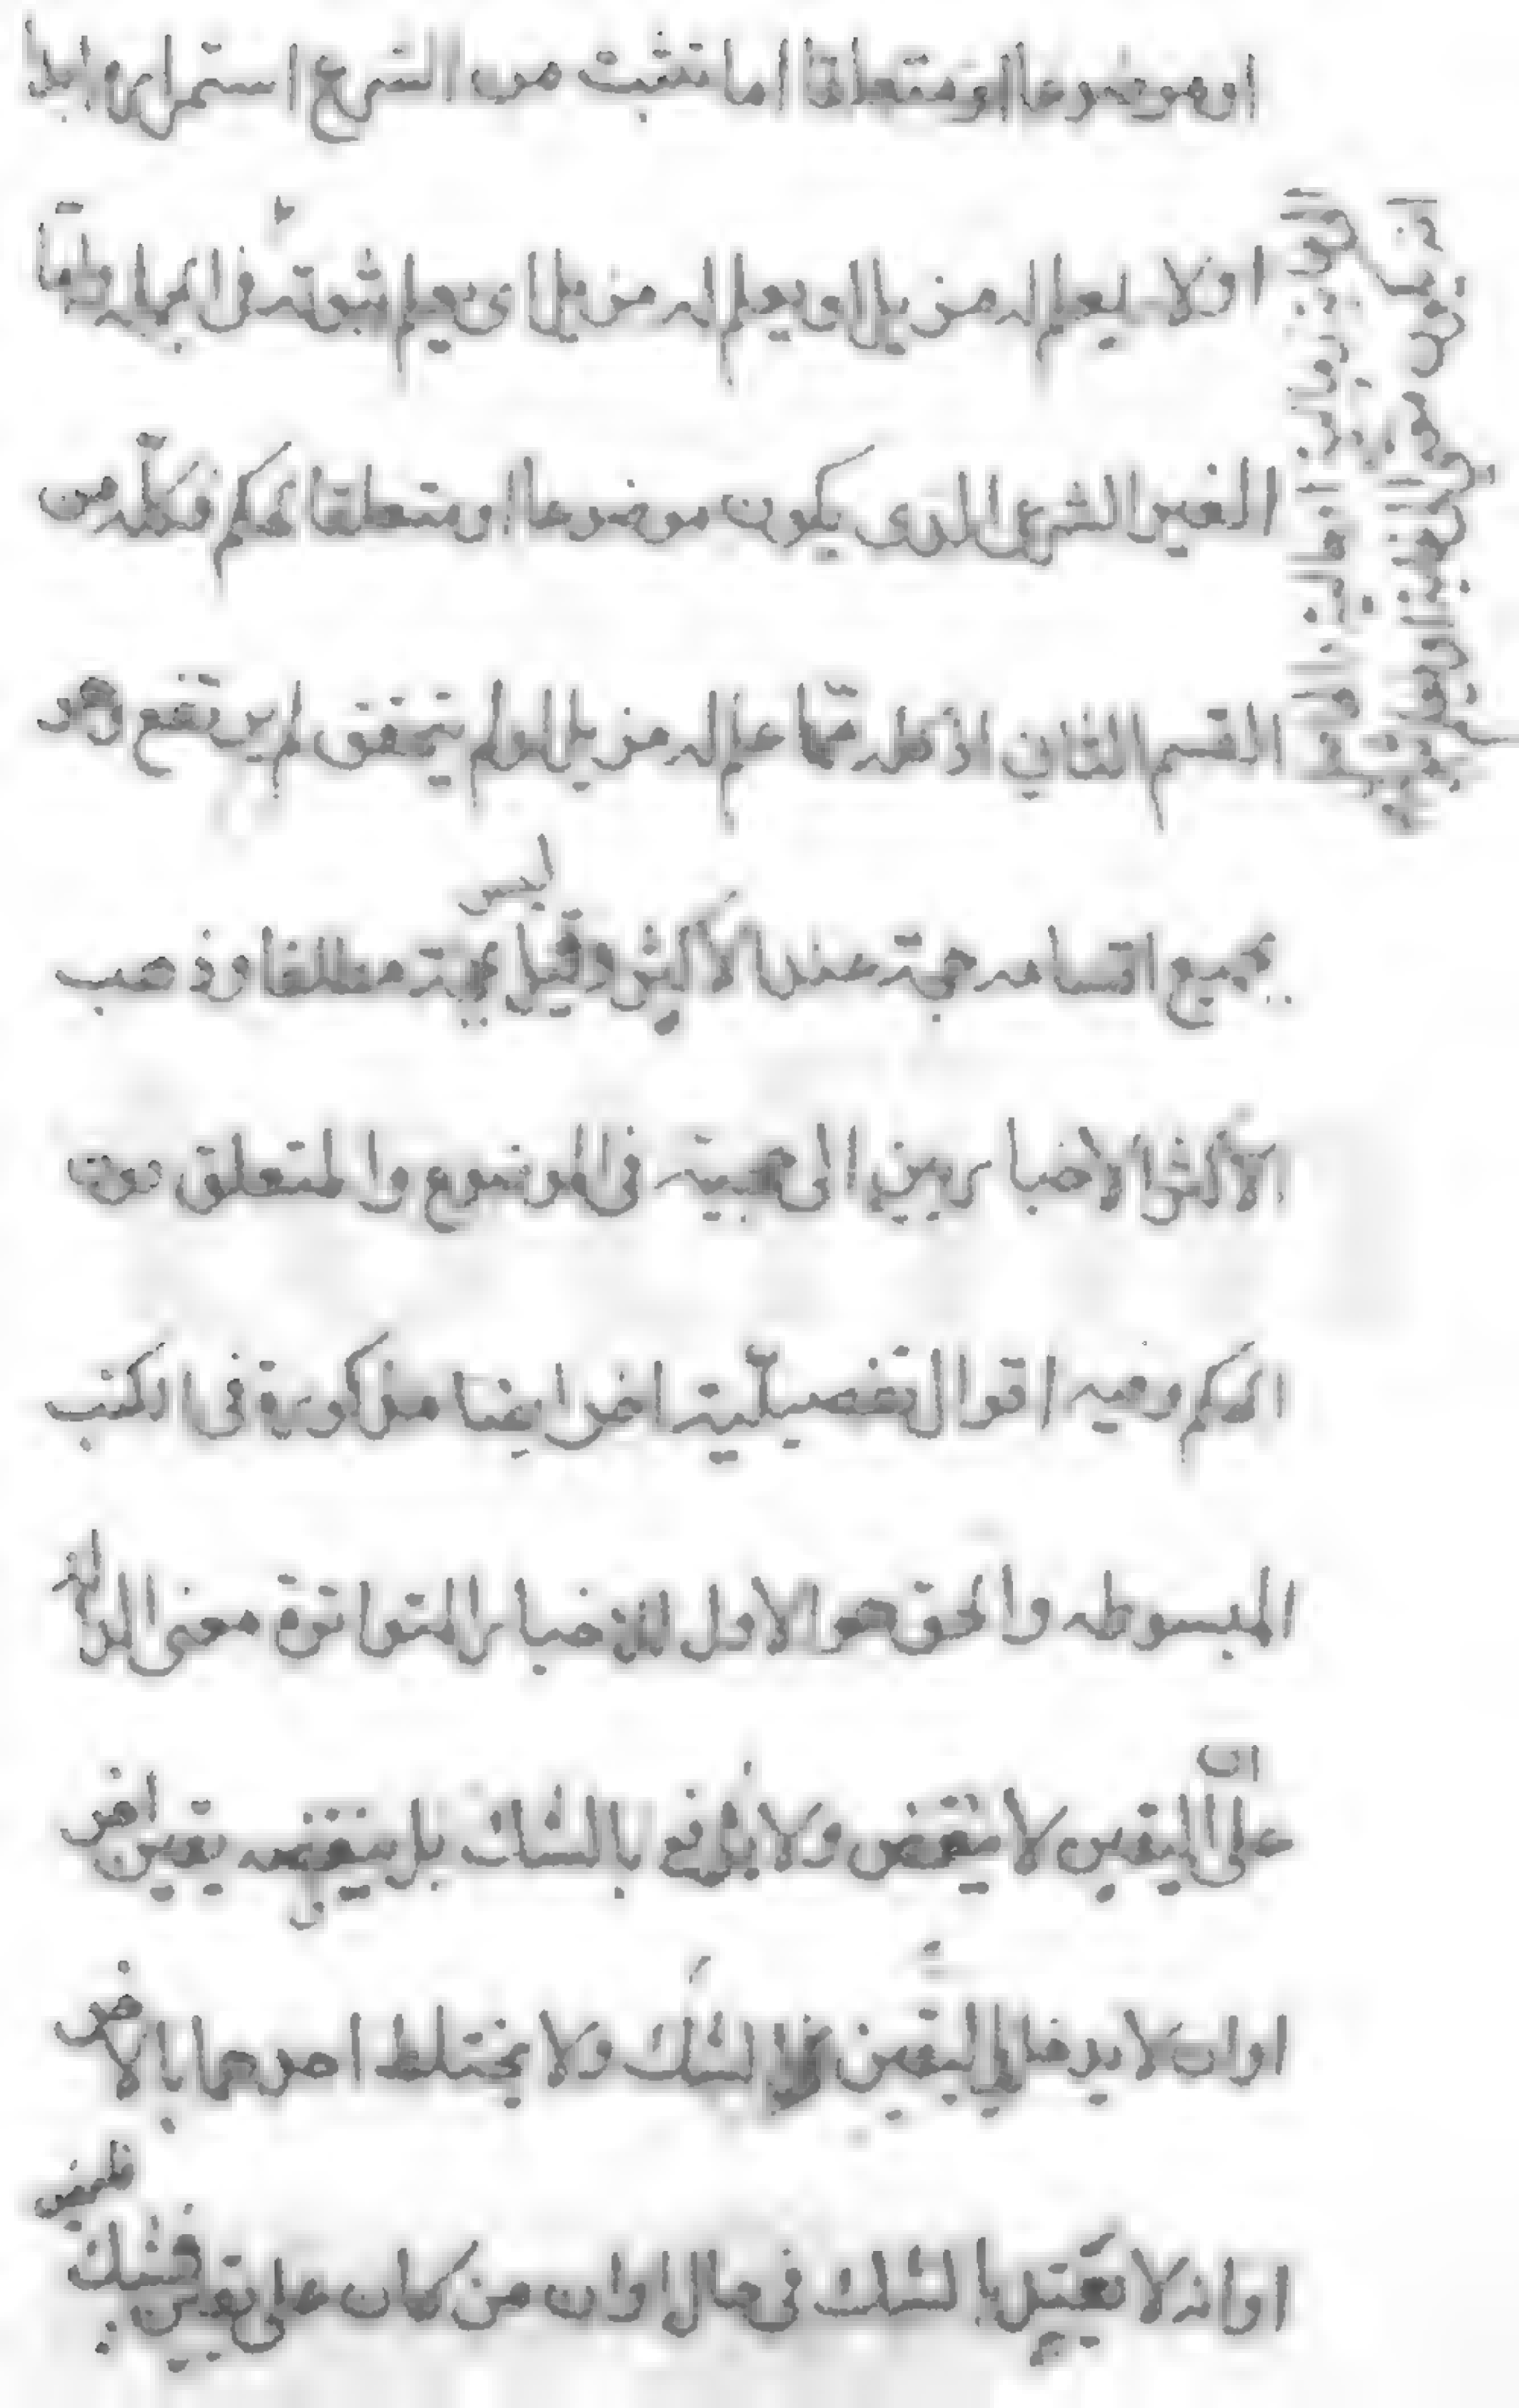 او موضوعا او متعلقا اما تثبت من الشرع استمراره ابدا
او لا يعلم له مزيل او يعلم له مزيل اى يعلم ثبوته فى الجملة واما
الغير الشرعى الذى يكون موضوعا او متعلقا لحكم فكله من
القسم الثانى اذ كله مما علم له مزيل لو لم يتحقق لم يرتفع وهو
بجميع اقسامه حجة عند الاكثر وقيل ليس بحجة مطلقا وذهب
الاكثر الاخباريين الى حجيته فى الموضوع والمتعلق دون
الحكم وفيه اقوال تفصيلية اخر ايضا مذكورة فى الكتب
المبسوطه والحق هو الاول للاخبار المتواترة معنى الدالة
على ان اليقين لا ينقض ولا يدفع بالشك بل ينقضه يقين اخر
او ان لا يدخل اليقين فى الشك ولا يختلط احدهما بالاخر
او انه لا يعتد بالشك فى حال او ان من كان على يقين فشك فليمض